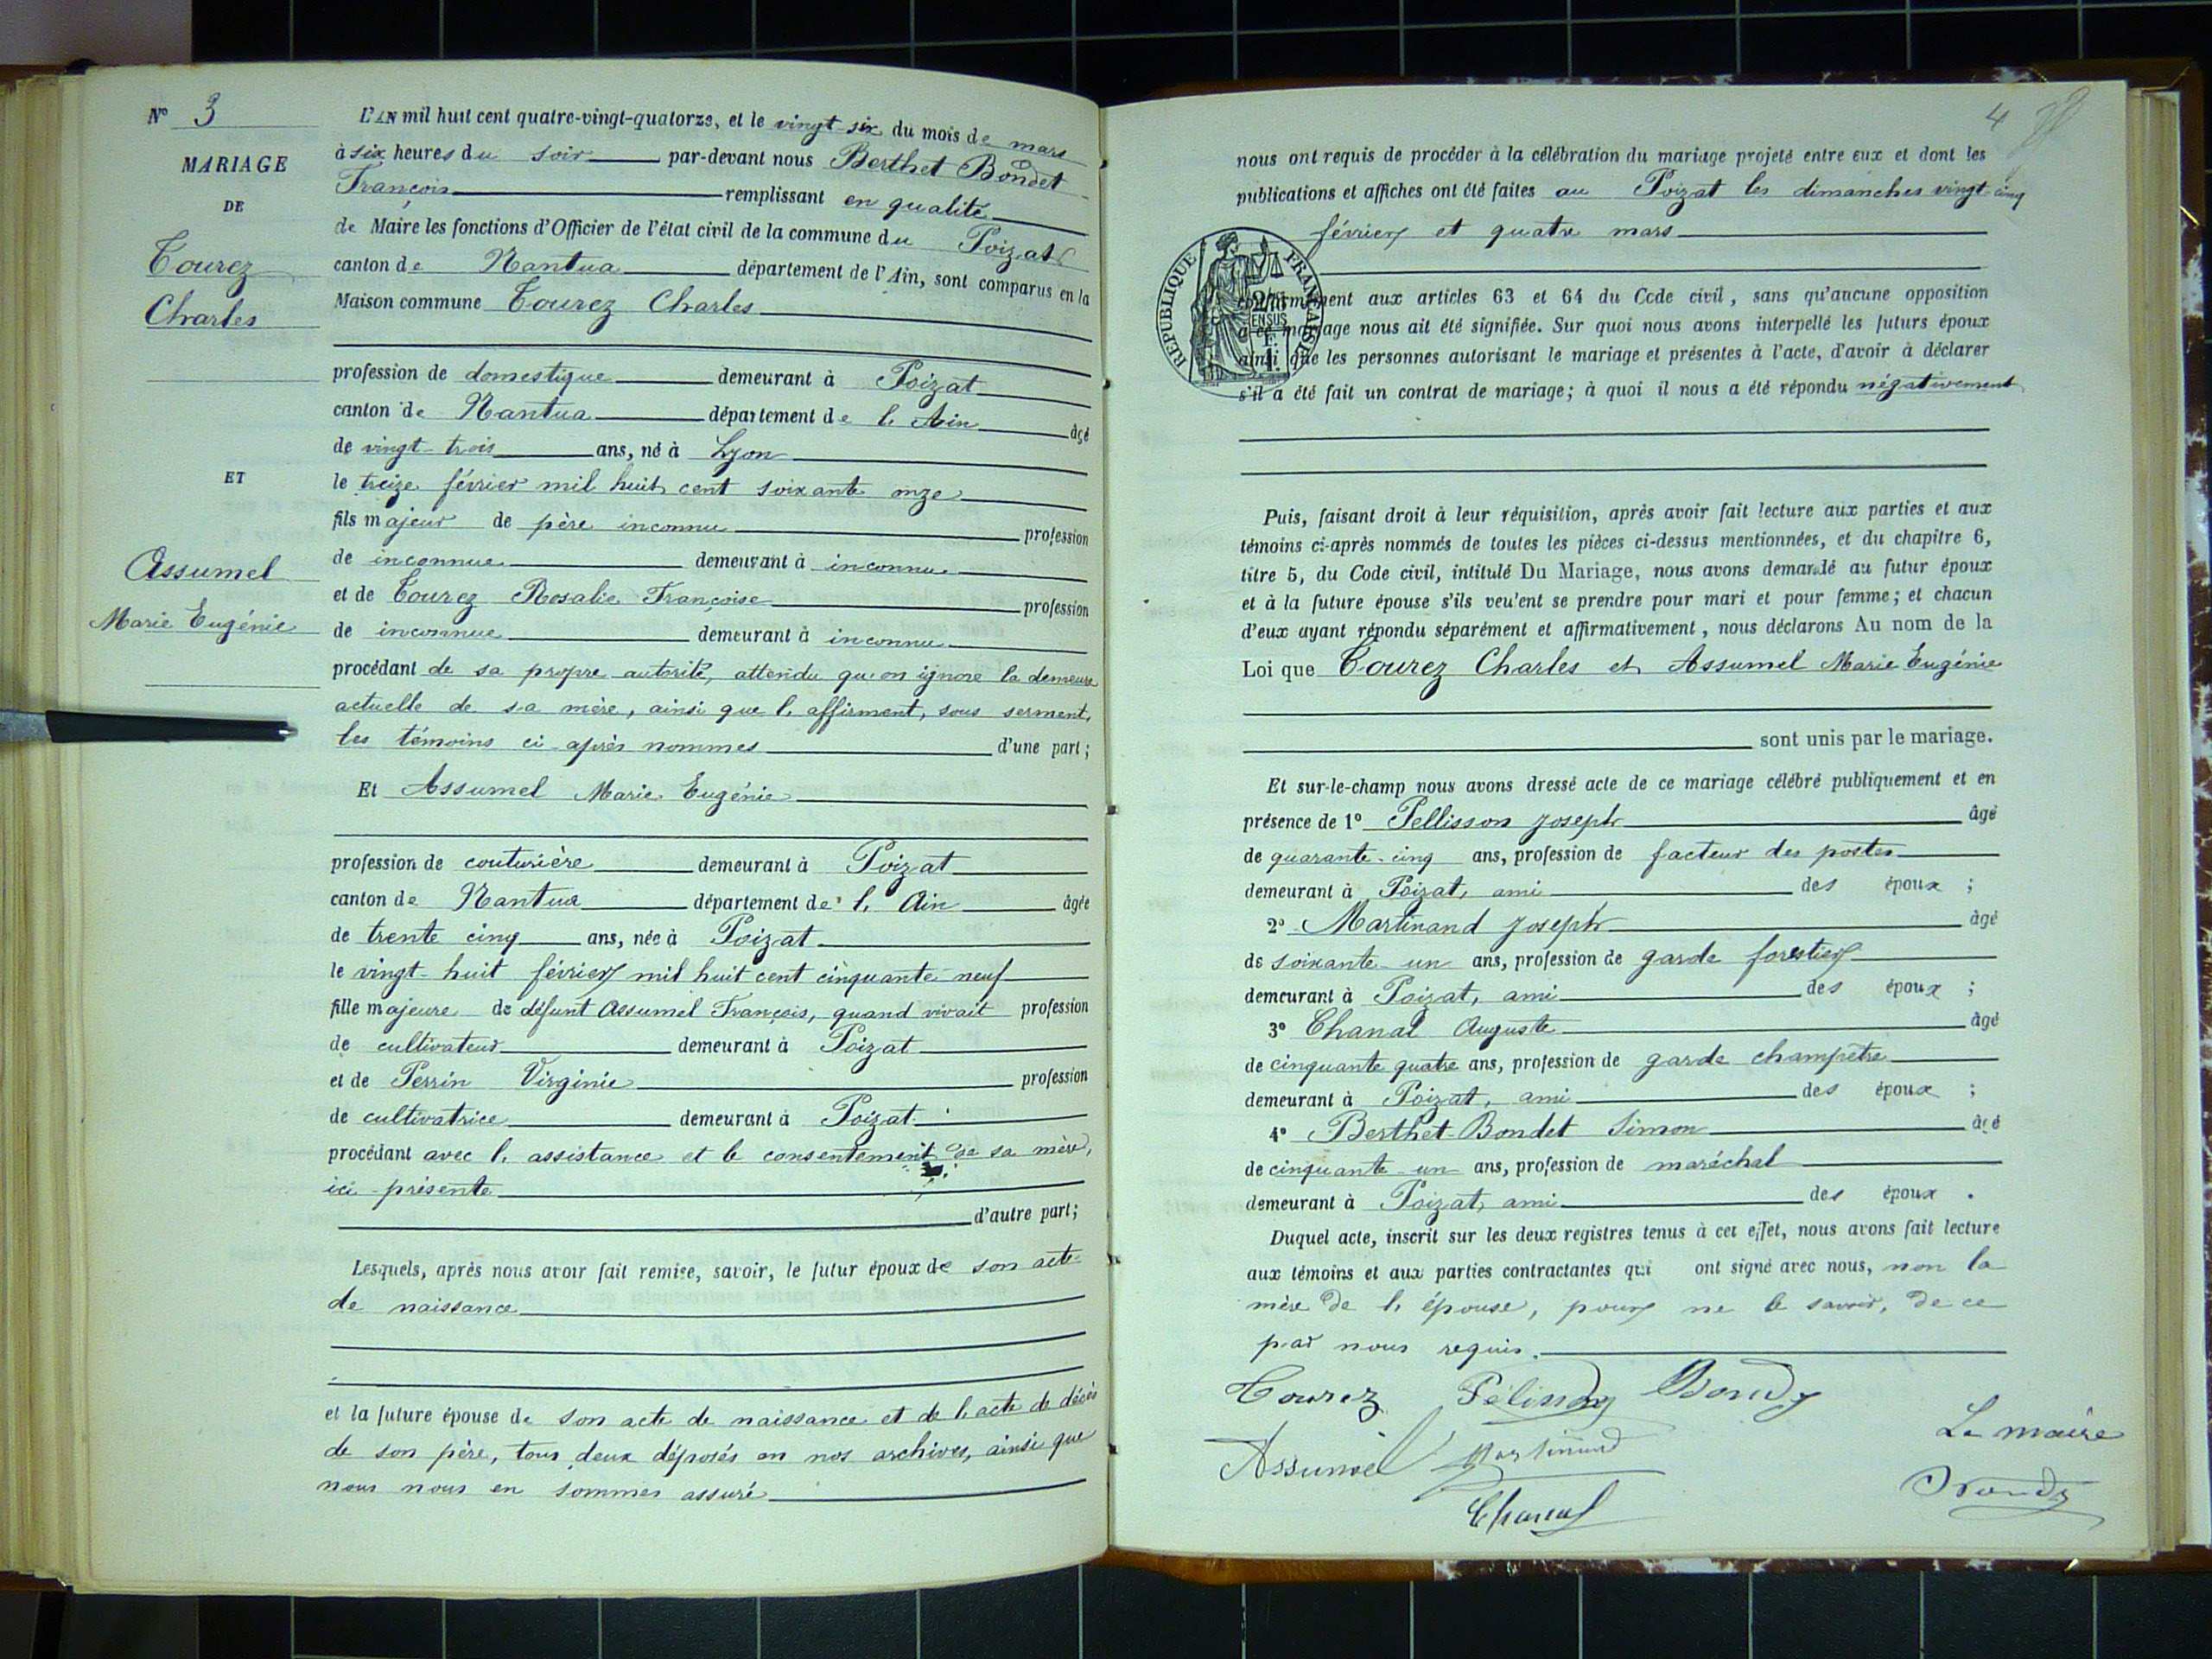 N° 3
MARIAGE
DE
Tourez
Charles
ET
Assumel
Marie Eugénie
L'AN mil huit cent quatre-vingt-quatorze, et le vingt-six du mois de mars
à six heures du soir par-devant nous Berthet Bondet
François remplissant en qualité
de Maire les fonctions d'Officier de l'état civil de la commune du Poizat
canton de Nantua département de l'Ain, sont comparus en la
Maison commune Tourez Charles
profession de domestique demeurant à Poizat
canton de Nantua département de l'Ain âgé
de vingt-trois ans, né à Lyon
le treize février mil huit cent soixante onze
fils majeur de père inconnu profession
de inconnue demeurant à inconnu
et de Tourez Rosalie Françoise profession
de inconnue demeurant à inconnu
procédant de sa propre autorité, attendu qu'on ignore la demeure
actuelle de sa mère, ainsi que l'affirment, sous serment,
les témoins ci-après nommés d'une part;
Et Assumel Marie Eugénie
profession de couturière demeurant à Poizat
canton de Nantua département de l'Ain âgée
de trente cinq ans, née à Poizat
le vingt-huit février mil huit cent cinquante-neuf
fille majeure de défunt Assumel François, quand vivait profession
de cultivateur demeurant à Poizat
et de Perrin Virginie profession
de cultivatrice demeurant à Poizat
procédant avec l'assistance et le consentement de sa mère,
ici présente
d'autre part;
Lesquels, après nous avoir fait remise, savoir, le futur époux de son acte
de naissance
et la future épouse de son acte de naissance et de l'acte de décès
de son père, tous deux déposés en nos archives, ainsi que
nous nous en sommes assuré
4
nous ont requis de procéder à la célébration du mariage projeté entre eux et dont les
publications et affiches ont été faites au Poizat les dimanches vingt-cinq
février et quatre mars
RÉPUBLIQUE FRANÇAISE
conformément aux articles 63 et 64 du Code civil, sans qu'aucune opposition
à ce mariage nous ait été signifiée. Sur quoi nous avons interpellé les futurs époux
ainsi que les personnes autorisant le mariage et présentes à l'acte, d'avoir à déclarer
s'il a été fait un contrat de mariage; à quoi il nous a été répondu négativement
Puis, faisant droit à leur réquisition, après avoir fait lecture aux parties et aux
témoins ci-après nommés de toutes les pièces ci-dessus mentionnées, et du chapitre 6,
titre 5, du Code civil, intitulé Du Mariage, nous avons demandé au futur époux
et à la future épouse s'ils veulent se prendre pour mari et pour femme; et chacun
d'eux ayant répondu séparément et affirmativement, nous déclarons Au nom de la
Loi que Tourez Charles et Assumel Marie Eugénie
sont unis par le mariage.
Et sur-le-champ nous avons dressé acte de ce mariage célébré publiquement et en
présence de 1° Pellisson Joseph âgé
de quarante-cinq ans, profession de facteur des postes
demeurant à Poizat, ami des époux ;
2° Martinand Joseph âgé
de soixante-un ans, profession de garde forestier
demeurant à Poizat, ami des époux ;
3° Chanal Auguste âgé
de cinquante quatre ans, profession de garde champêtre
demeurant à Poizat, ami des époux ;
4° Berthet-Bondet Simon âgé
de cinquante-un ans, profession de maréchal
demeurant à Poizat, ami des époux .
Duquel acte, inscrit sur les deux registres tenus à cet effet, nous avons fait lecture
aux témoins et aux parties contractantes qui ont signé avec nous, non la
mère de l'épouse, pour ne le savoir, de ce
par nous requis.
Tourez Pélisson Bondy
Assumel Martinand
Chanal
Le maire